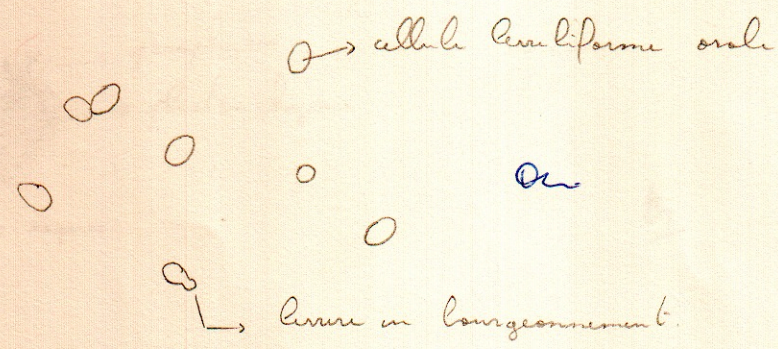 cellule levuliforme ovale
levure en bourgeonnement.